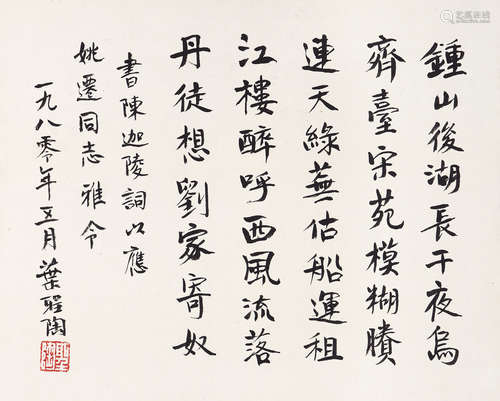 鍾山後湖長干夜烏
齊臺宋苑模糊賸
連天綠蕪估船運租
江樓醉呼西風流落
丹徒想劉家寄奴
書陳迦陵詞以應
姚遷同志雅令
一九八零年五月葉聖陶